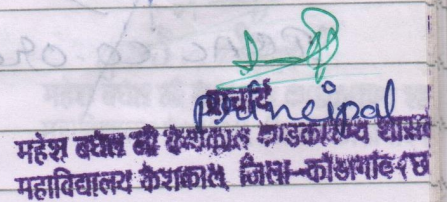 प्राचार्य
Principal
महेश बघेल श्री केशकाल शास
महाविद्यालय केशकाल जिला-कोंडागांव (छ